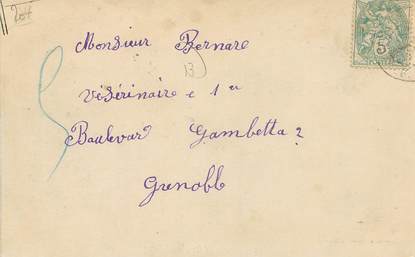 204
Monsieur Bernare
13
Vétérinaire e 1er
Boulevar Gambetta 2
Grenoble
5
POSTES